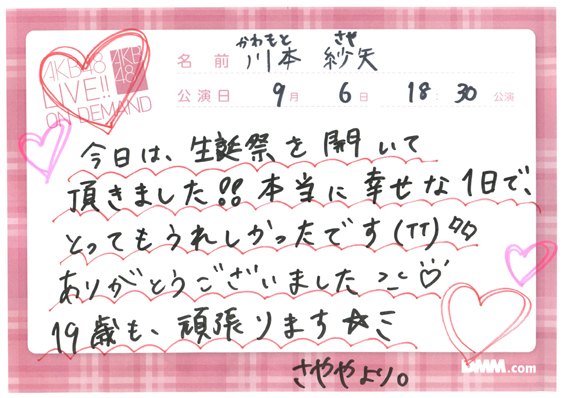 AKB48
LIVE!!
ON DEMAND
AKB
48
かわもと さや
名前 川本 紗矢
公演日 9月 6日 18:30 公演
今日は、生誕祭を開いて
頂きました!!本当に幸せな1日で、
とってもうれしかったです(TT)タタ
ありがとうございました
19歳も、頑張ります☆ミ
さややより。
DMM.com